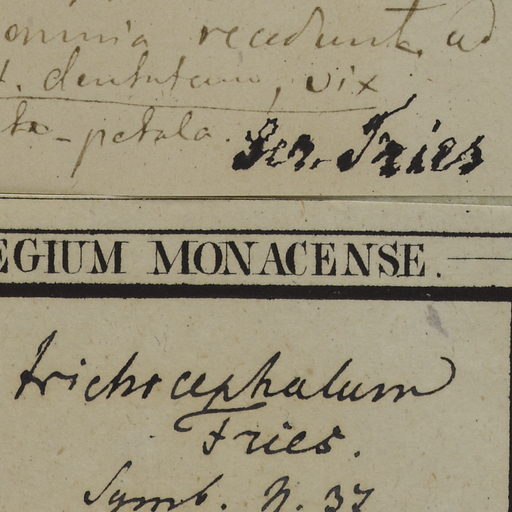 omnia recedunt ad
. dentatum, vix
-petala.
Ser. Fries
EGIUM MONACENSE.
trichocephalum
Fries.
Symb. N. 37